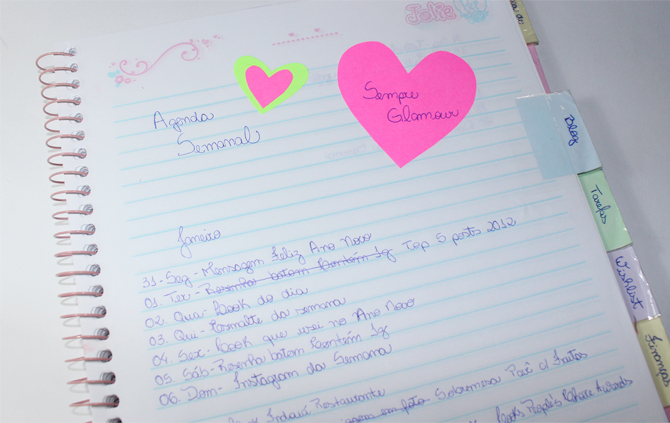 Feliz
Sempre
Glamour
Agenda
Semanal
Janeiro
31 - Seg - Mensagem Feliz Ano Novo
01. Ter - Resenha batom Contém 1g Top 5 posts 2012
02. Qua - Look do dia
03. Qui - Esmalte da semana
04. Sex - Look que usei no Ano Novo
05. Sáb - Resenha batom Contém 1g
06. Dom - Instagram da Semana
Restaurante
Sobremesa Pavê c/ frutas
Looks People's Choice Awards
Blog
Tarefas
Wishlist
Finanças